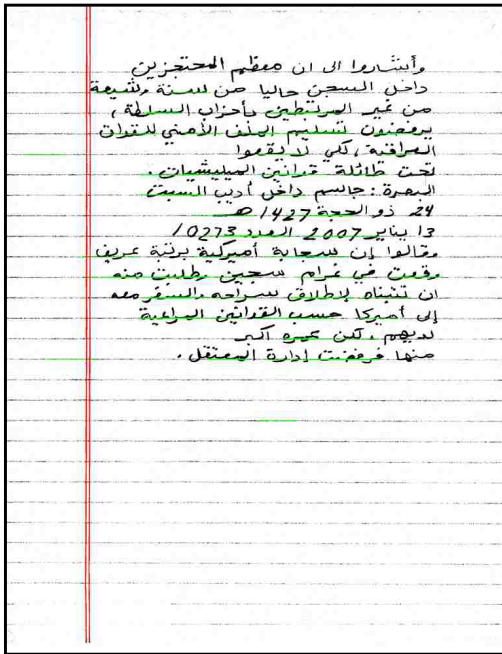 وأشاروا الى ان معظم المحتجزين
داخل السجن حاليا من سنة وشيعة
من غير المرتبطين بأحزاب السلطة ،
يرفضون تسليم الملف الأمني للقوات
العراقية ، لكي لا يقعوا
تحت طائلة قوانين الميليشيات .
البصرة : جاسم داخل أديب السبت
24 ذو الحجة 1427 هـ
13 يناير 2007 العدد 10273
وقالوا إن سجانة أميركية برتبة عريف
وقعت في غرام سجين وطلبت منه
ان تتبناه لإطلاق سراحه والسفر معه
إلى أميركا حسب القوانين المراعية
لديهم ، لكن عمره اكبر
منها فرفضت إدارة المعتقل .